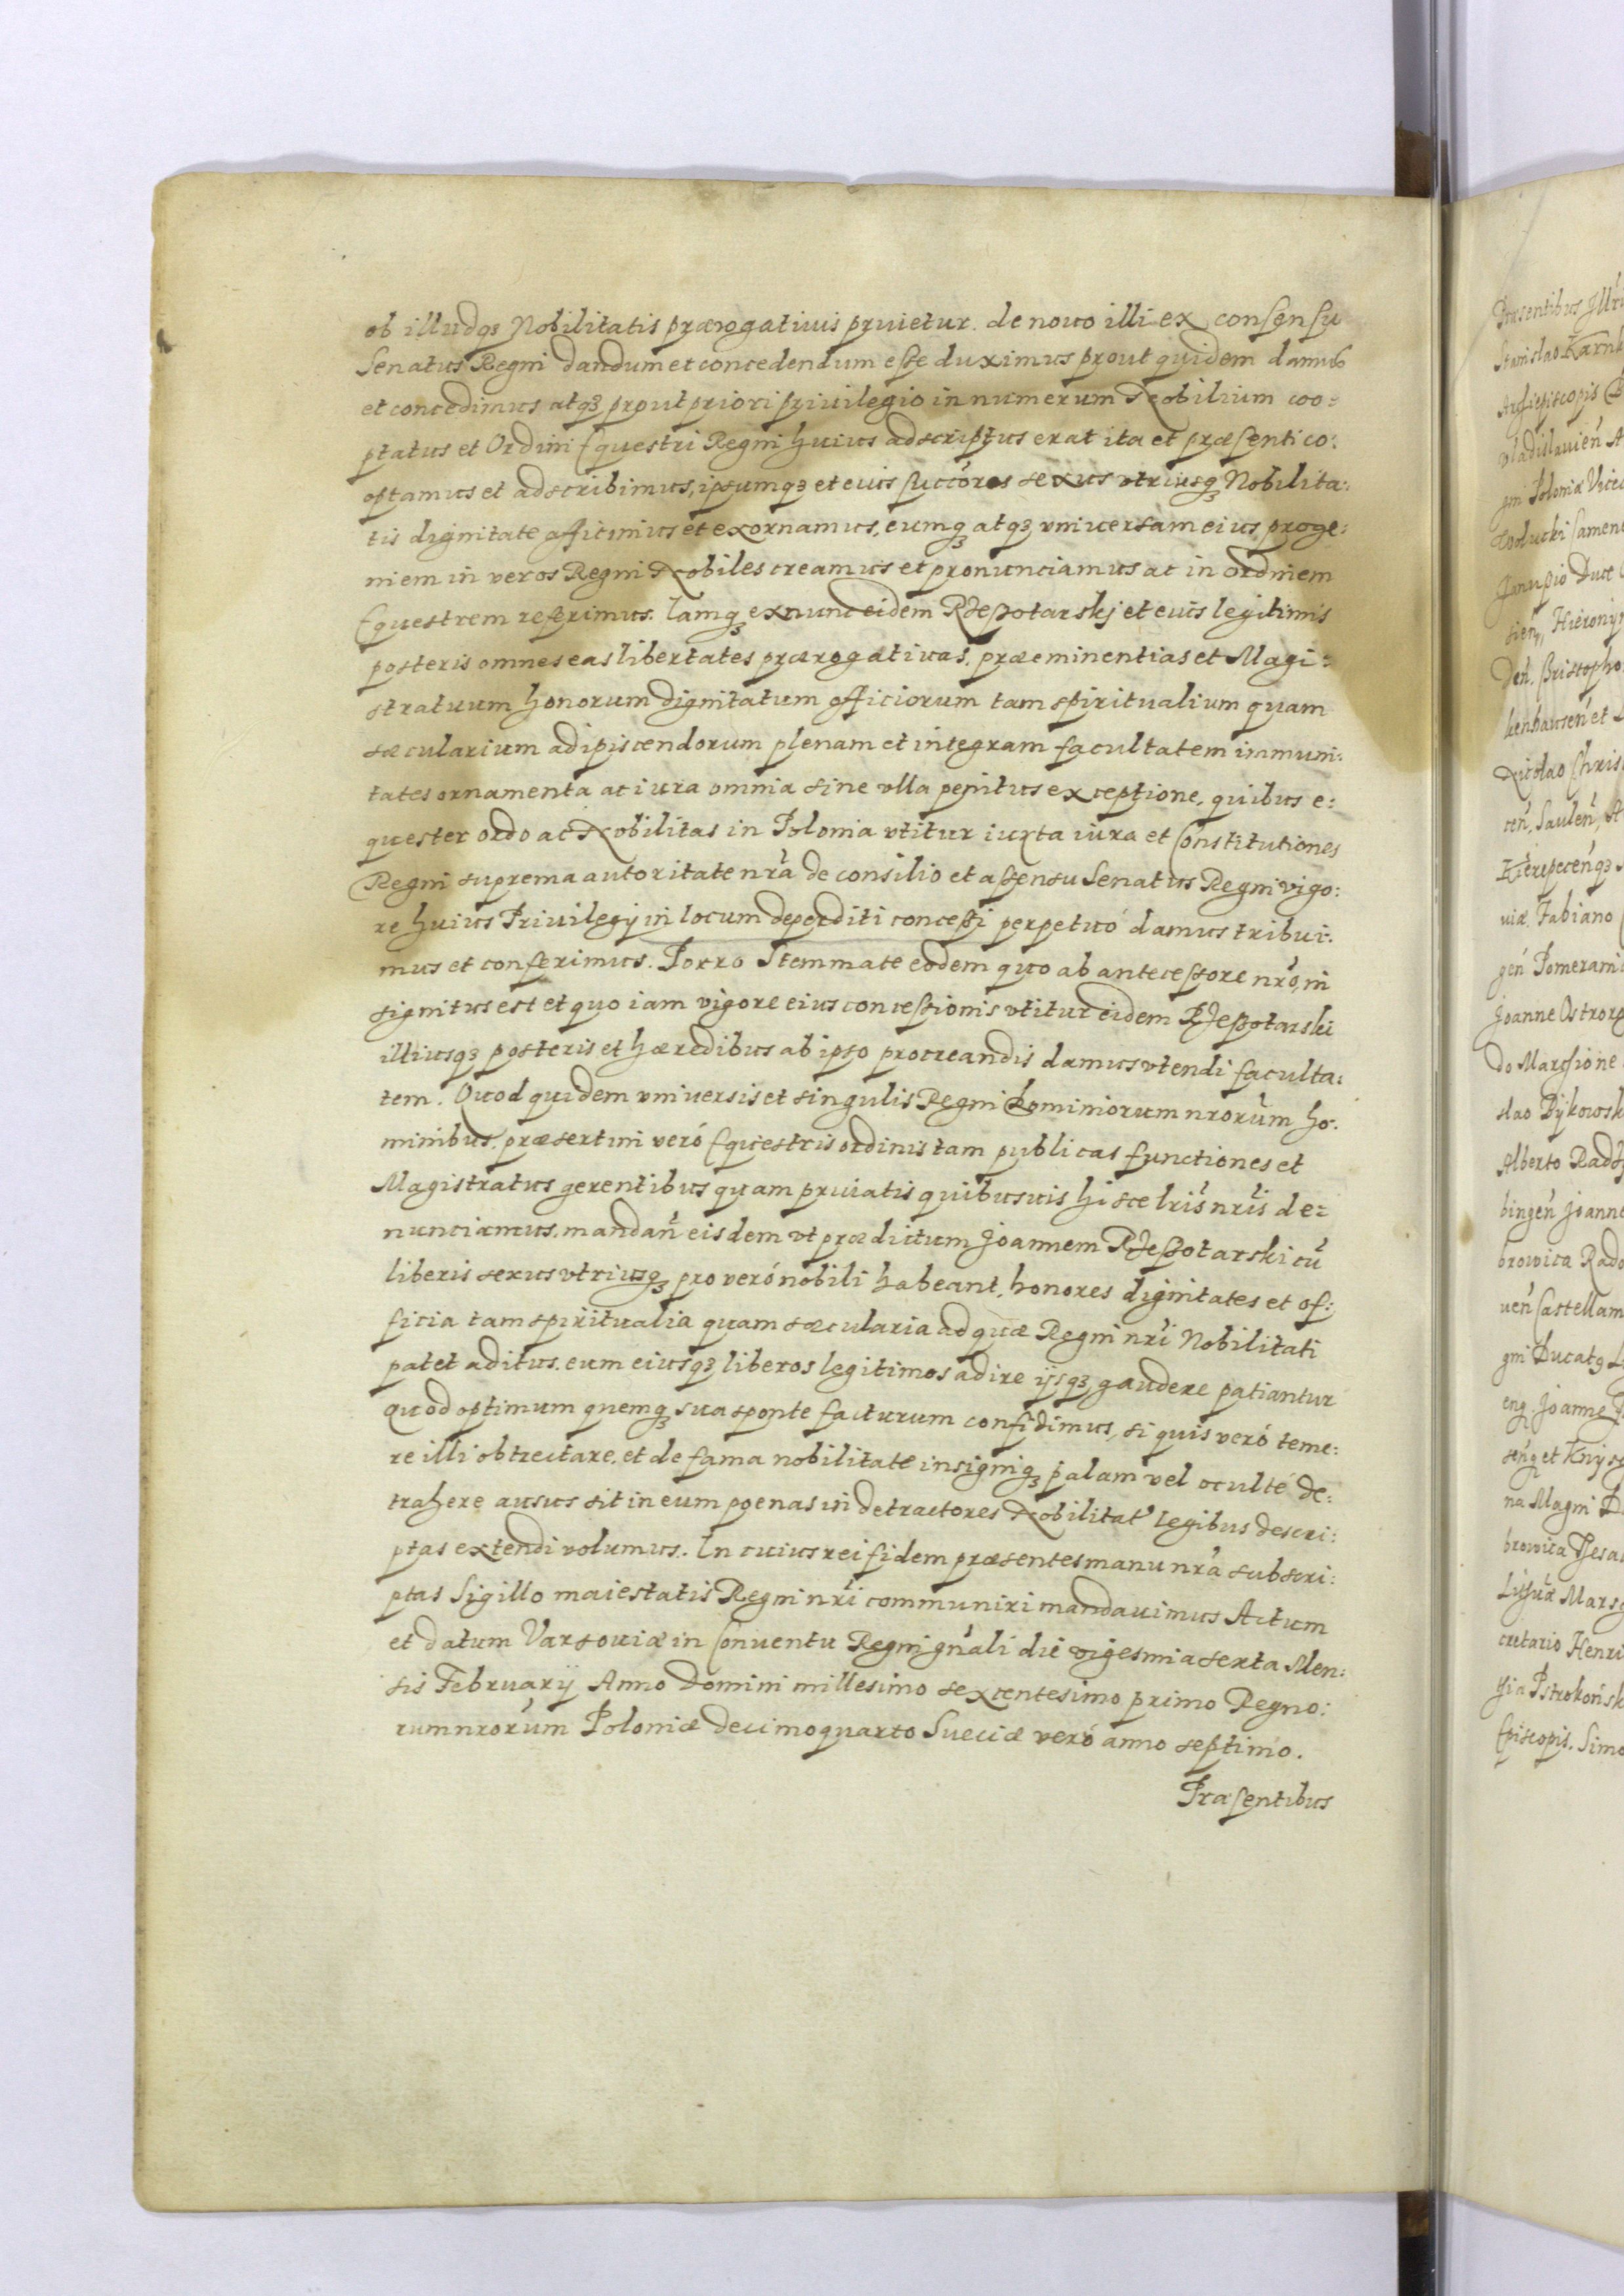 ob illudq3 Nobilitatis prærogativis privietur. de novo illi ex consensu
Senatus Regni dandum et concedendum esse duximus prout quidem damus
et concedimus atq3 prout priori privilegio in numerum Nobilium coo:
ptatus et Ordini Equestri Regni huius adscriptus erat ita et præsenti co:
optamus et adscribimus, ipsumq3 et eius succóres sexus vtriusq3 Nobilita:
tis dignitate afficimus et exornamus, eumq3 atq3 vniversam eius proge:
niem in veros Regni Nobiles creamus et pronunciamus ac in ordinem
Equestrem referimus. Iamq3 ex nunc eidem Rzeszotarskj et eius legitimis
posteris omnes eas libertates prærogativas, præeminentias et Magi:
stratuum honorum dignitatum officiorum tam spiritualium quam
sæcularium adipiscendorum plenam et integram facultatem immuni:
tates ornamenta ac iura omnia sine vlla penitus exceptione, quibus e:
quester ordo ac Nobilitas in Polonia vtitur iuxta iura et Constitutiones
Regni suprema autoritate nrá de consilio et assensu Senatus Regni vigo:
re huius Privilegij in locum deperditi concessi perpetuó damus tribui:
mus et conferimus. Porro Stemmate eodem quo ab antecessore nró, in
signitus est et quo iam vigore eius concessionis vtitur eidem Rzeszotarski
illiusq3 posteris et hæredibus ab ipso procreandis damus vtendi faculta:
tem. Quod quidem vniversis et singulis Regni Dominiorum nrorúm ho:
minibus, præsertim veró Equestris ordinis tam publicas functiones et
Magistratus gerentibus quam privatis quibusvis hisce lrís nrís de:
nunciamus, mandań eisdem vt prædictum Joannem Rzeszotarski cú
liberis sexus vtriusq3 pro veró nobili habeant, honores dignitates et of:
ficia tam spiritualia quam sæcularia ad quæ Regni nrí Nobilitati
patet aditus, eum eiusq3 liberos legitimos adire ijsq3 gaudere patiantur
quod optimum quemq3 sua sponte facturum confidimus, si quis veró teme:
re illi obtrectare, et de fama nobilitate insigniq3 palam vel occulté de:
trahere ausus sit in eum poenas in detractores Nobilitat' legibus descri:
ptas extendi volumus. In cuius rei fidem præsentes manu nrá subscri:
ptas Sigillo maiestatis Regni nrí communiri mandavimus Actum
et datum Varsoviæ in Conventu Regni gnáli die vigesima sexta Men:
sis Februarij Anno Domini millesimo sexcentesimo primo Regno:
rum nrorúm Poloniæ decimoquarto Sueciæ veró anno septimo.
Præsentibus
Præsentibus Jllri
Stanislao Karnk
Archiepiscopis
Vladislavień
gni Poloniæ Vice
Janussio Duce
sień, Hieronijm
Deń. Christopho
kenhausień et
Nicolao Chris
ceń, Sauleń,
viæ Fabiano
geń Pomerani
Joanne Ostrorg
do Marchione
slao Dzikowsk
Alberto Radz
bingeń Joanne
browica Rado
veń Castellan
gni Ducatq L
enq. Joanne
na Magni D
Ligur Mars
cretario Henri
thia Pstrokońsk
Episcopis. Simo